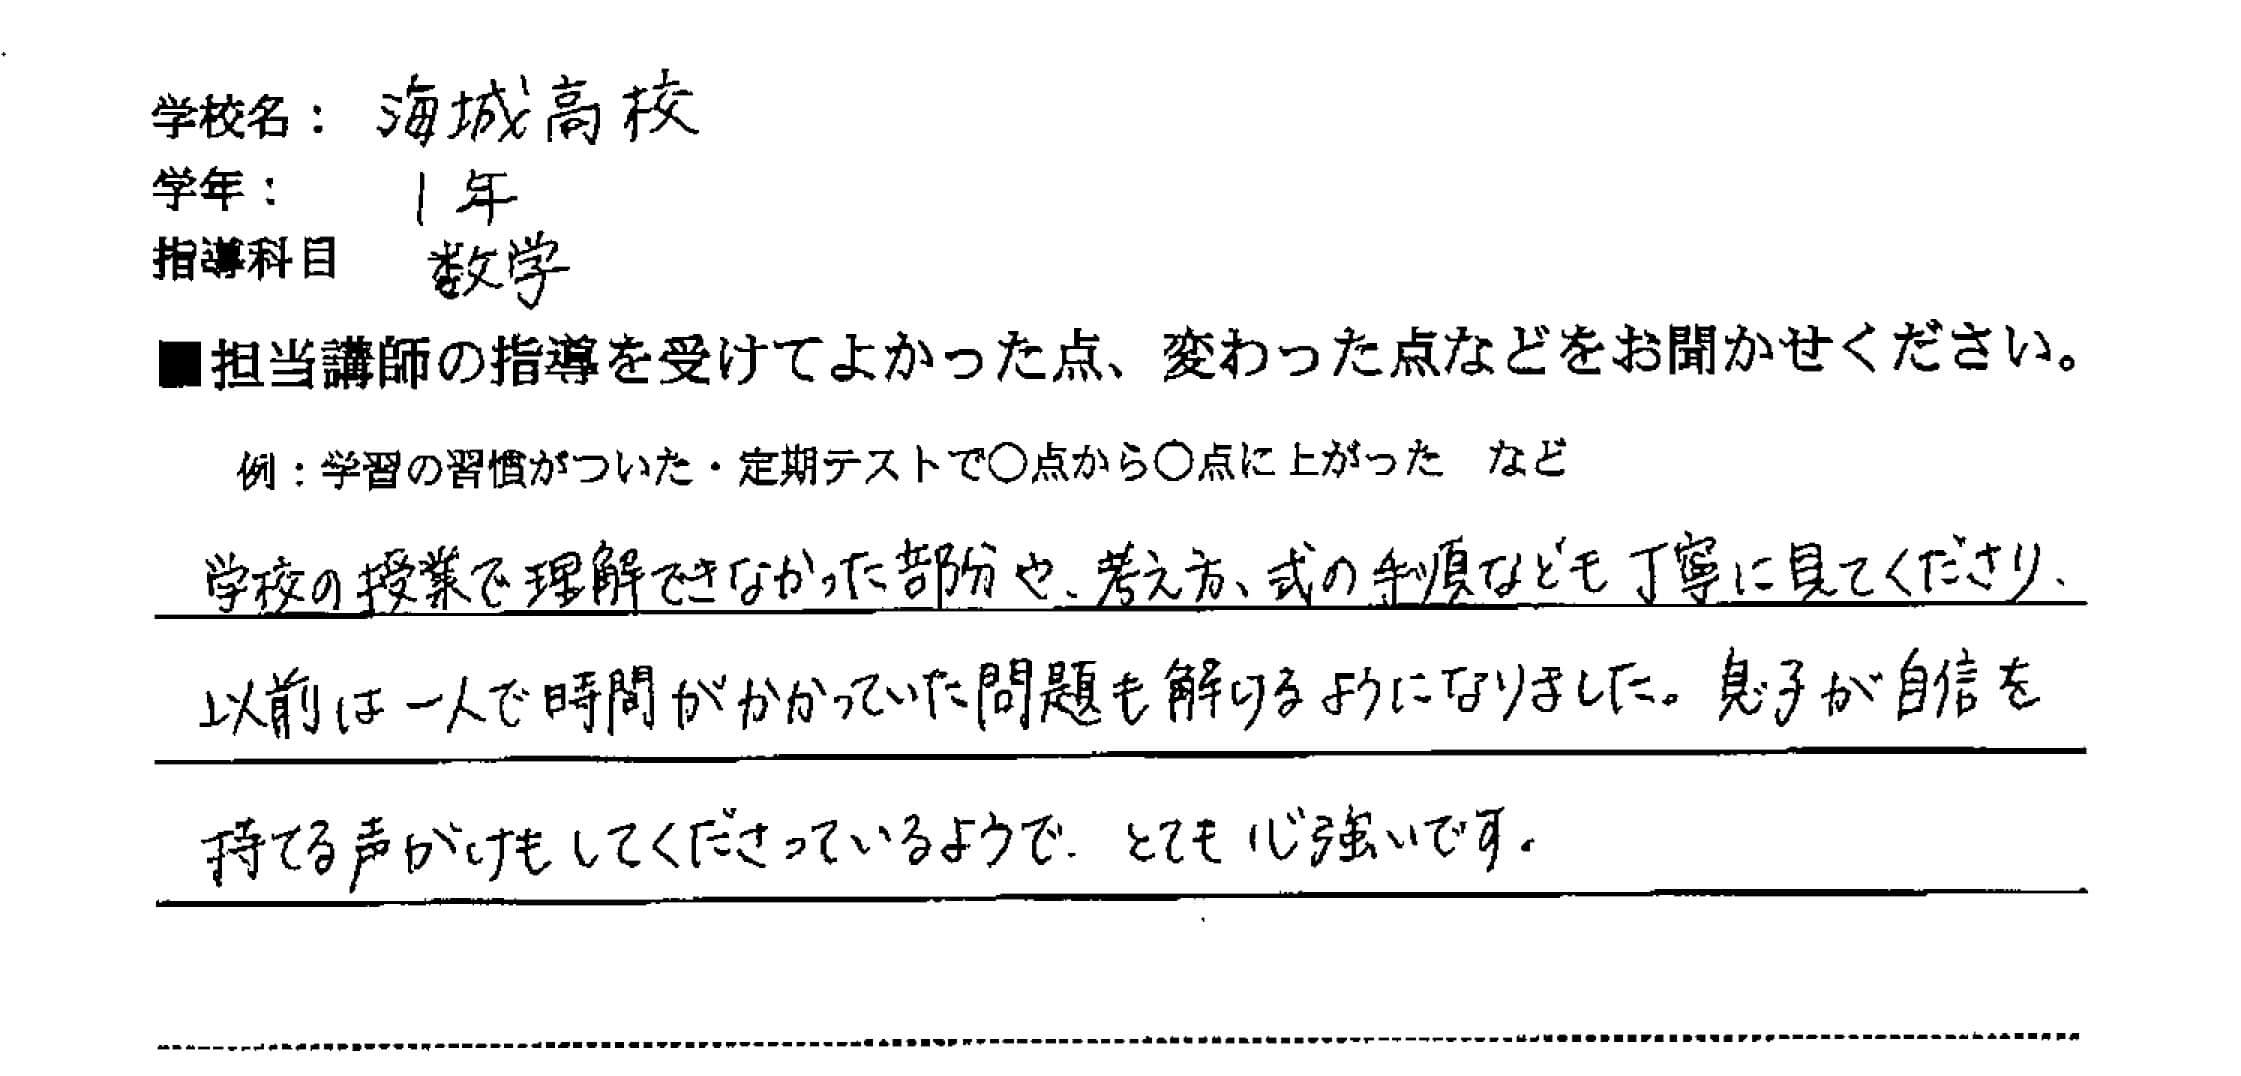 学校名： 海城高校
学年： 1年
指導科目 数学
■担当講師の指導を受けてよかった点、変わった点などをお聞かせください。
例：学習の習慣がついた・定期テストで〇点から〇点に上がった　など
学校の授業で理解できなかった部分や、考え方、式の手順なども丁寧に見てくださり、
以前は一人で時間がかかっていた問題も解けるようになりました。息子が自信を
持てる声がけもしてくださっているようで、とても心強いです。